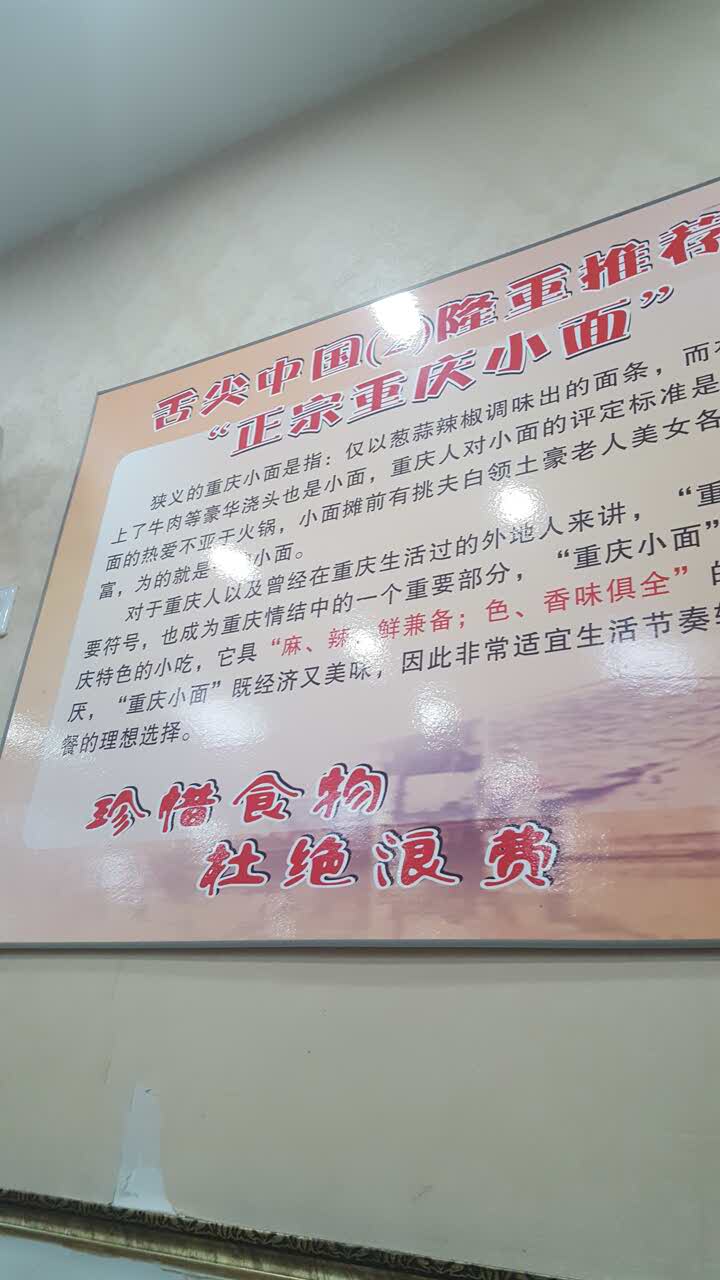 舌尖中国(2)隆重推荐
“正宗重庆小面”
狭义的重庆小面是指：仅以葱蒜辣椒调味出的面条，而
上了牛肉等豪华浇头也是小面，重庆人对小面的评定标准是
面的热爱不亚于火锅，小面摊前有挑夫白领土豪老人美女各
富，为的就是 小面。
对于重庆人以及曾经在重庆生活过的外地人来讲，“重
要符号，也成为重庆情结中的一个重要部分，“重庆小面”
庆特色的小吃，它具“麻、辣 鲜兼备；色、香味俱全”的
厌，“重庆小面”既经济又美味，因此非常适宜生活节奏
餐的理想选择。
珍惜食物
杜绝浪费